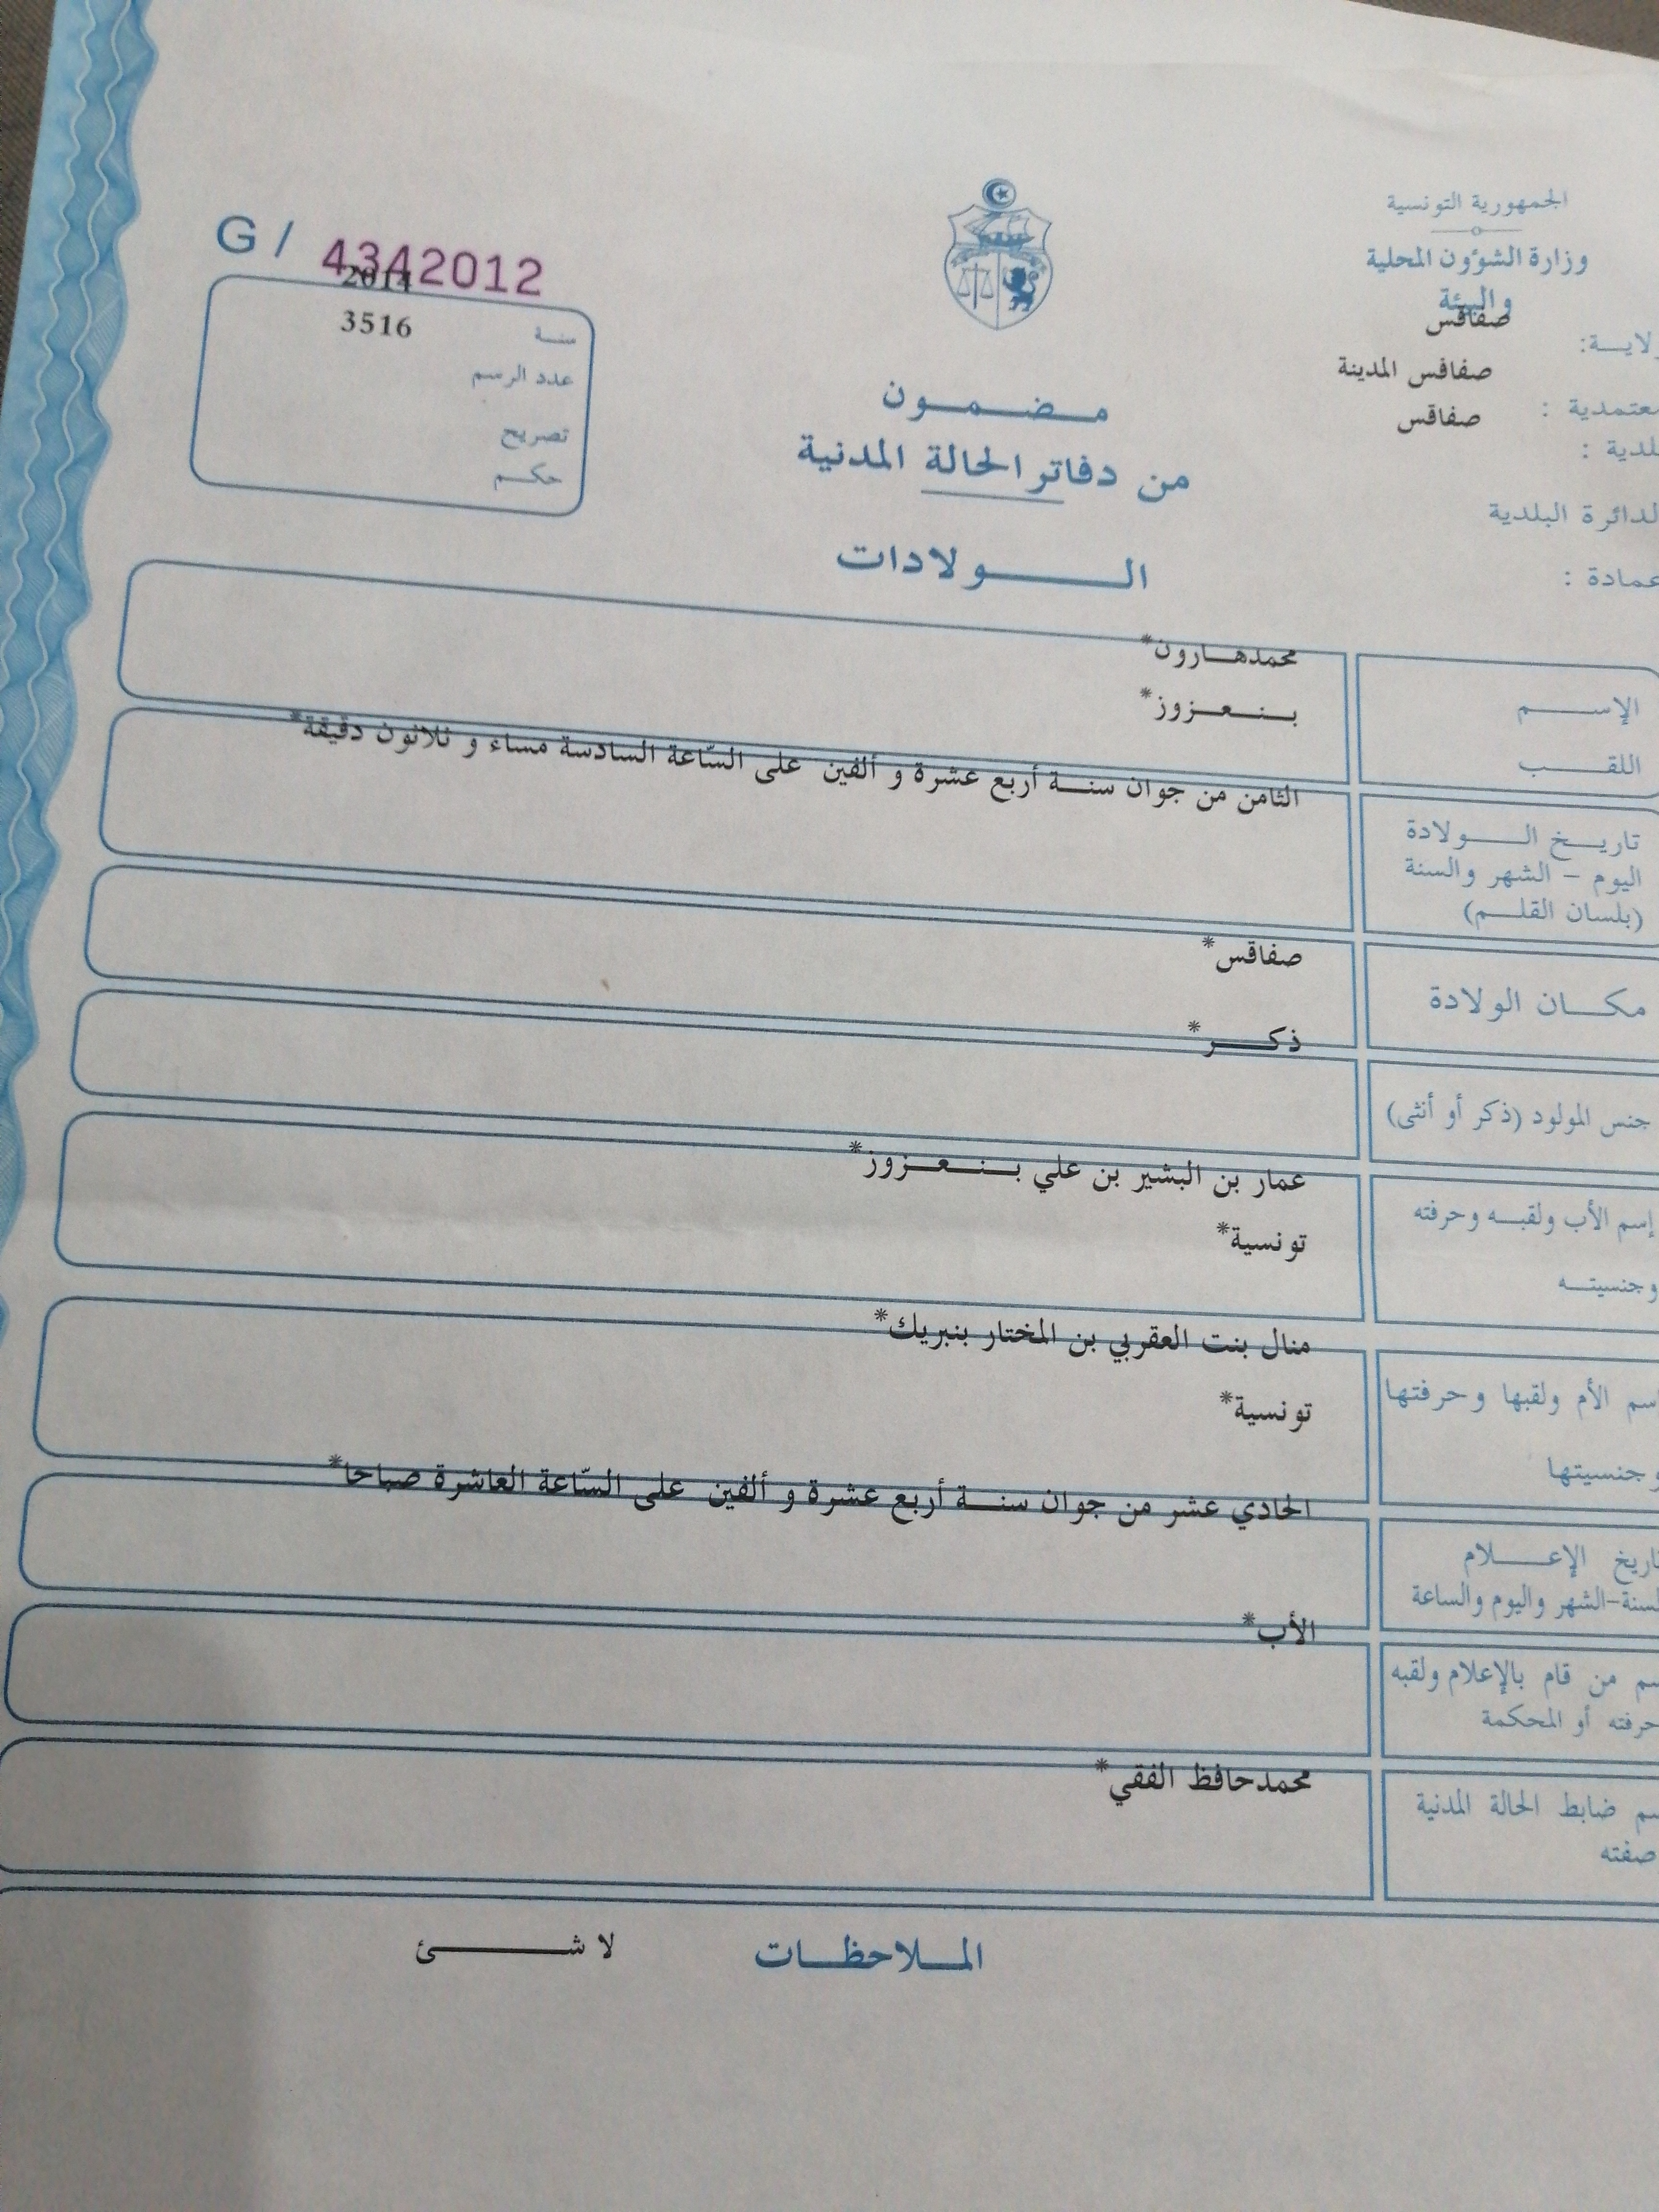 الجمهورية التونسية
وزارة الشؤون المحلية
والبيئة
ولايــة: صفاقس
معتمدية : صفاقس المدينة
بلدية : صفاقس
الدائرة البلدية
عمادة :
G / 4342012
سنـة 2014
عدد الرسم 3516
تصريح
حكـم
مـضـمـون
من دفاتر الحالة المدنية
الـولادات
الإسـم محمدهـارون*
اللقـب بـنـعـزوز*
تاريـخ الـولادة
اليوم – الشهر والسنة
(بلسان القلـم)
الثامن من جوان سنـة أربع عشرة و ألفين على السّاعة السادسة مساء و ثلاثون دقيقة*
مكـان الولادة صفاقس*
جنس المولود (ذكر أو أنثى) ذكـر*
إسم الأب ولقبـه وحرفته عمار بن البشير بن علي بـنـعـزوز*
وجنسيتـه تونسية*
إسم الأم ولقبها وحرفتها منال بنت العقربي بن المختار بنبريك*
وجنسيتها تونسية*
تاريخ الإعـلام
السنة-الشهر واليوم والساعة
الحادي عشر من جوان سنـة أربع عشرة و ألفين على السّاعة العاشرة صباحا*
إسم من قام بالإعلام ولقبه
حرفته أو المحكمة
الأب*
إسم ضابط الحالة المدنية
صفته
محمدحافظ الفقي*
المـلاحظـات لا شـئ